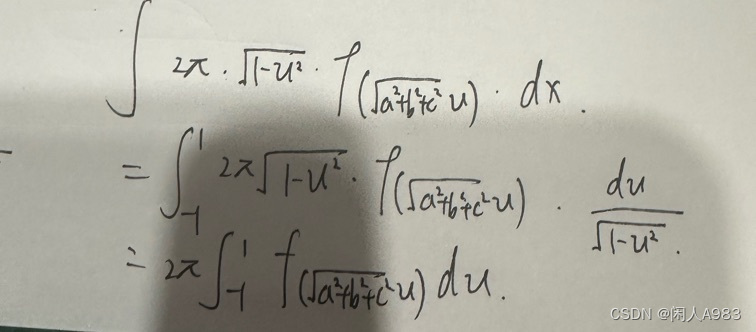 ∫ 2π · √(1-u²) · f(√(a²+b²+c²) u) · dx .
= ∫₋₁¹ 2π √(1-u²) · f(√(a²+b²+c²) u) · du/√(1-u²) .
= 2π ∫₋₁¹ f(√(a²+b²+c²) u) du.
CSDN @闲人A983